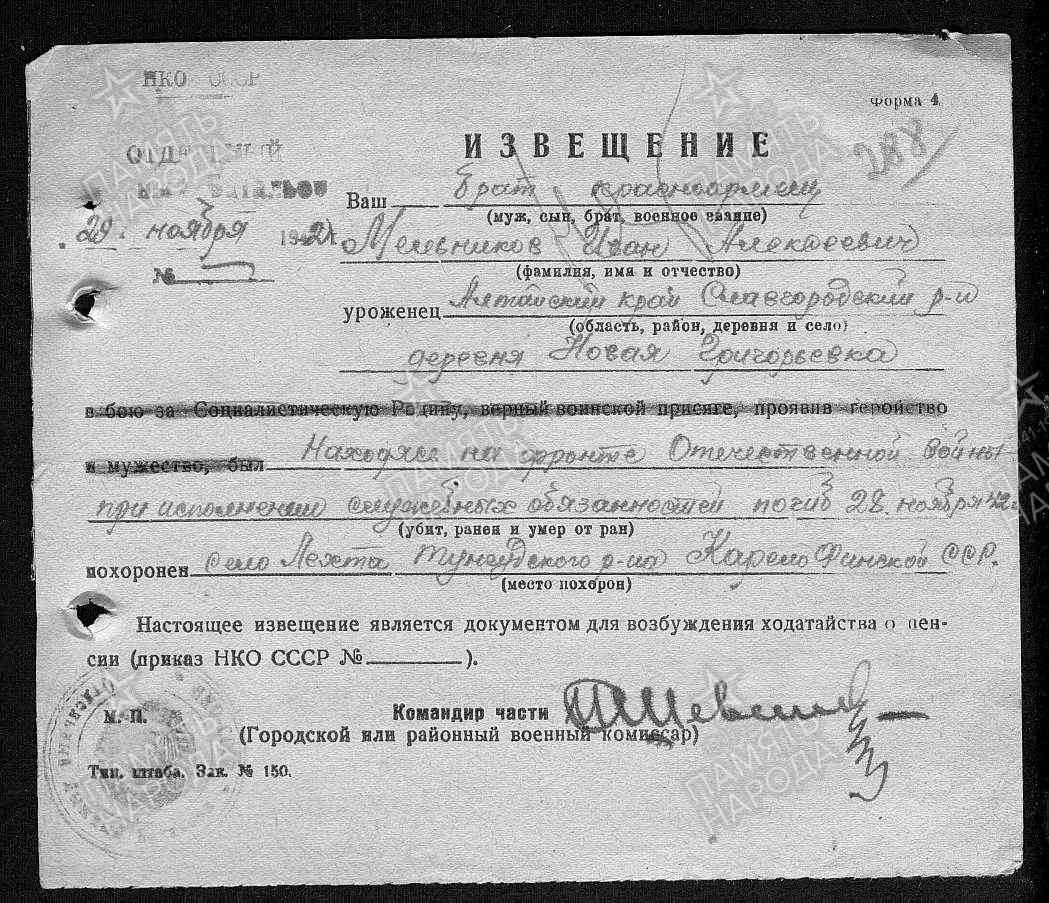 НКО СССР
Форма 4
ОТДЕЛЬНЫЙ
ИЗВЕЩЕНИЕ
288
батальон
Ваш брат красноармеец
(муж, сын, брат, военное звание)
29. ноября 1942 г.
Мельников Иван Алексеевич
№
(фамилия, имя и отчество)
уроженец Алтайский край Славгородский р-н
(область, район, деревня и село)
деревня Новая Григорьевка
в бою за Социалистическую Родину, верный воинской присяге, проявив геройство
и мужество, был Находясь на фронте Отечественной войны
при исполнении служебных обязанностей погиб 28. ноября 42 г.
(убит, ранен и умер от ран)
похоронен село Лехта Тунгудского р-на Карело Финской ССР.
(место похорон)
Настоящее извещение является документом для возбуждения ходатайства о пен-
сии (приказ НКО СССР № ).
М. П.
Командир части
(Городской или районный военный комиссар)
Тип. штаба. Зак. № 150.
ПАМЯТЬ НАРОДА